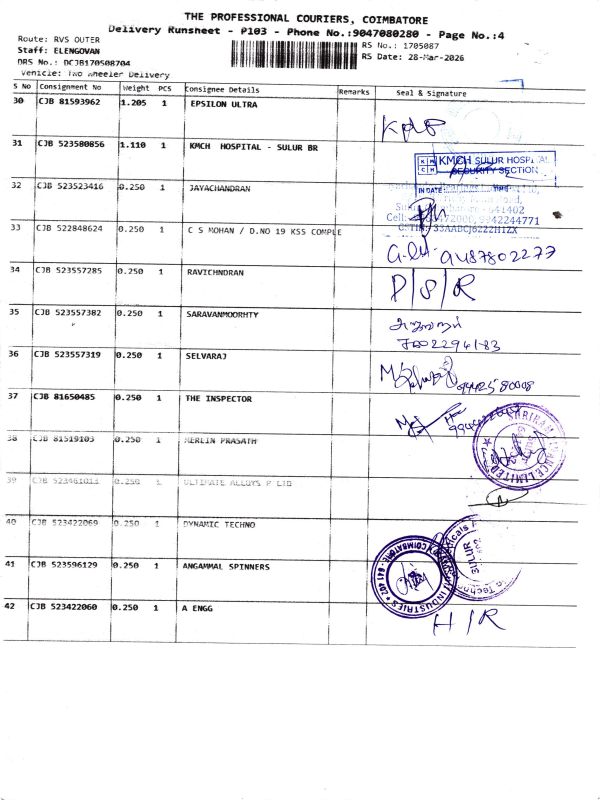 THE PROFESSIONAL COURIERS, COIMBATORE
Delivery Runsheet - P103 - Phone No.:9047080280 - Page No.:4
Route: RVS OUTER
RS No.: 1705087
Staff: ELENGOVAN
RS Date: 28-Mar-2026
DRS No.: DCJB170508704
Vehicle: Two Wheeler Delivery
S No Consignment No Weight PCS Consignee Details Remarks Seal & Signature
30 CJB 81593962 1.205 1 EPSILON ULTRA
31 CJB 523580856 1.110 1 KMCH HOSPITAL - SULUR BR
KMCH SULUR HOSPITAL
SECURITY SECTION
IN DATE
32 CJB 523523416 0.250 1 JAYACHANDRAN
641402
9942244771
33AADCJ6222H1ZX
33 CJB 522848624 0.250 1 C S MOHAN / D.NO 19 KSS COMPLE
9487802277
34 CJB 523557285 0.250 1 RAVICHNDRAN
D/S/R
35 CJB 523557382 0.250 1 SARAVANMOORHTY
36 CJB 523557319 0.250 1 SELVARAJ
9442580008
37 CJB 81650485 0.250 1 THE INSPECTOR
38 CJB 81519103 0.250 1 MERLIN PRASATH
SHRIRAM FINANCE LIMITED
39 CJB 523461013 0.250 1 ULTIMATE ALLOYS P LTD
40 CJB 523422069 0.250 1 DYNAMIC TECHNO
SULUR
41 CJB 523596129 0.250 1 ANGAMMAL SPINNERS
INDUSTRIES
COIMBATORE - 641 402
42 CJB 523422060 0.250 1 A ENGG
H/R